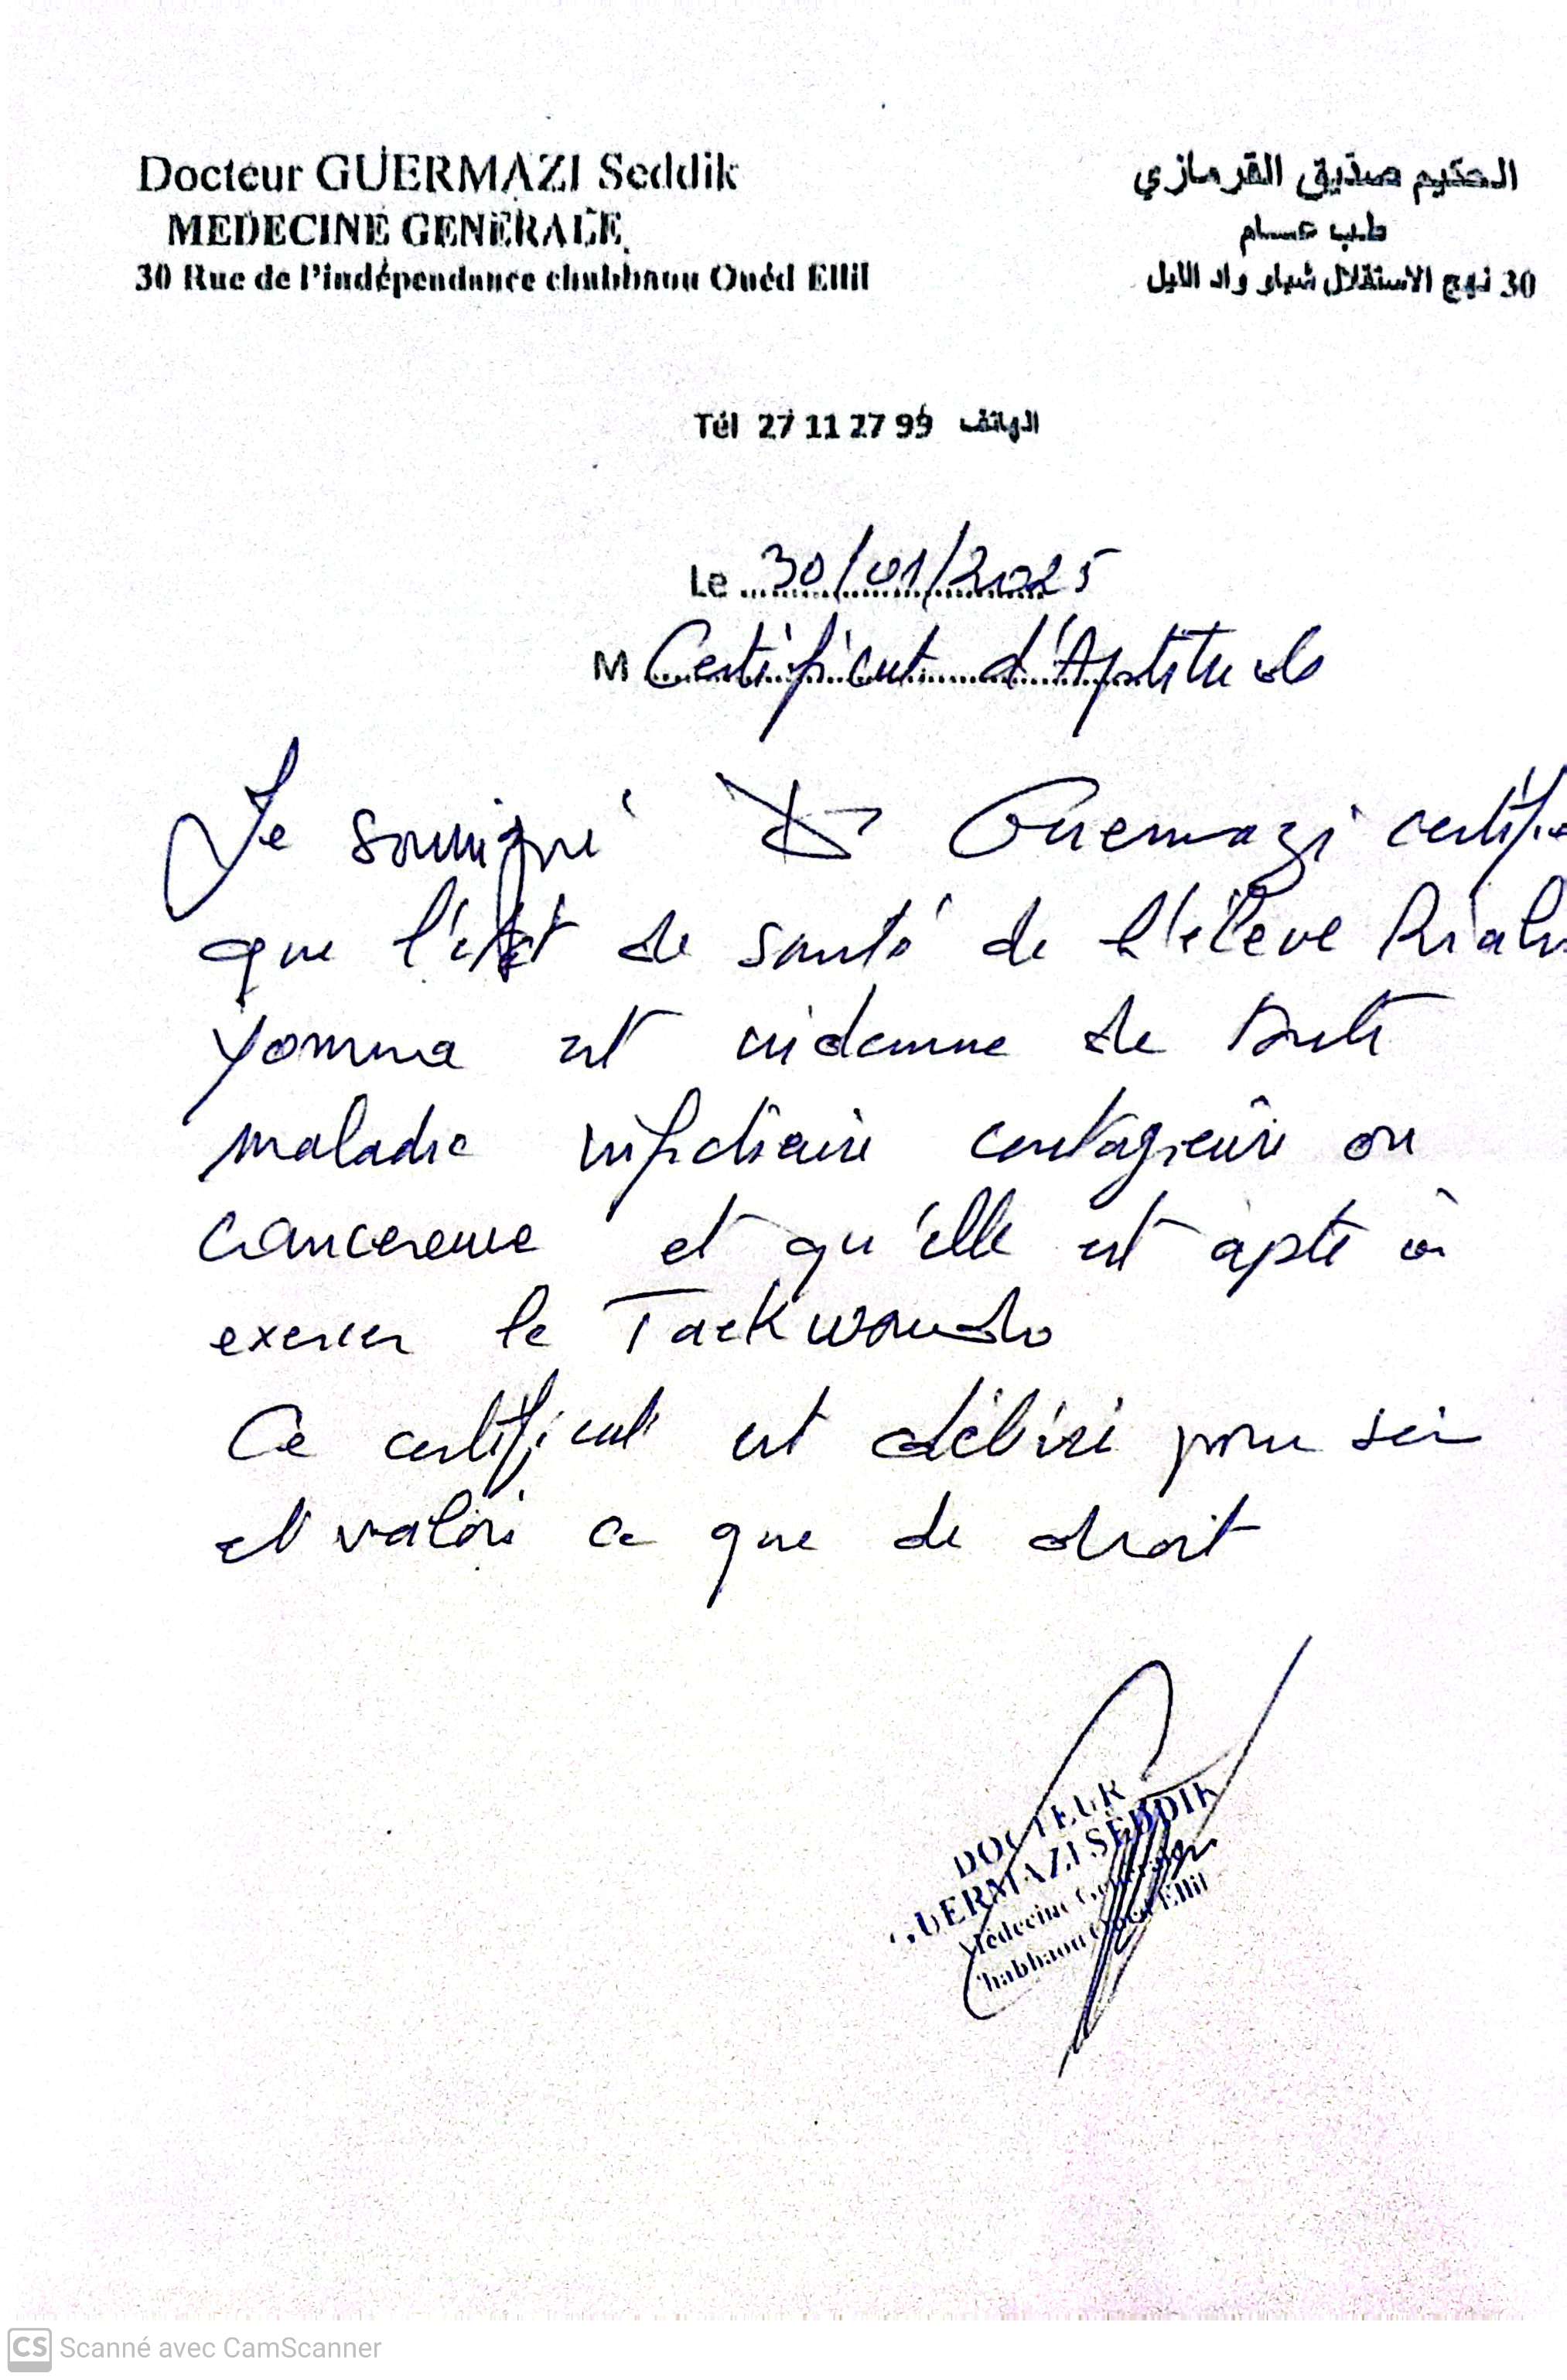 Docteur GUERMAZI Seddik
MEDECINE GENERALE
30 Rue de l'indépendance chabbaou Ouéd Ellil
الحكيم صديق القرمازي
طب عام
30 نهج الاستقلال شباو واد الليل
Tél 27 11 27 99 الهاتف
Le 30/01/2025
M Certificat d'Aptitude
Je soussigné Dr Guermazi certifie
que l'état de santé de l'élève
Yomna est indemne de toute
maladie infectieuse contagieuse ou
cancereuse et qu'elle est apte à
exercer le Taekwondo
Ce certificat est délivré pour servir
et valoir ce que de droit
DOCTEUR
GUERMAZI SEDDIK
Médecine Générale
Chabbaou Oued Ellil
CS Scanné avec CamScanner